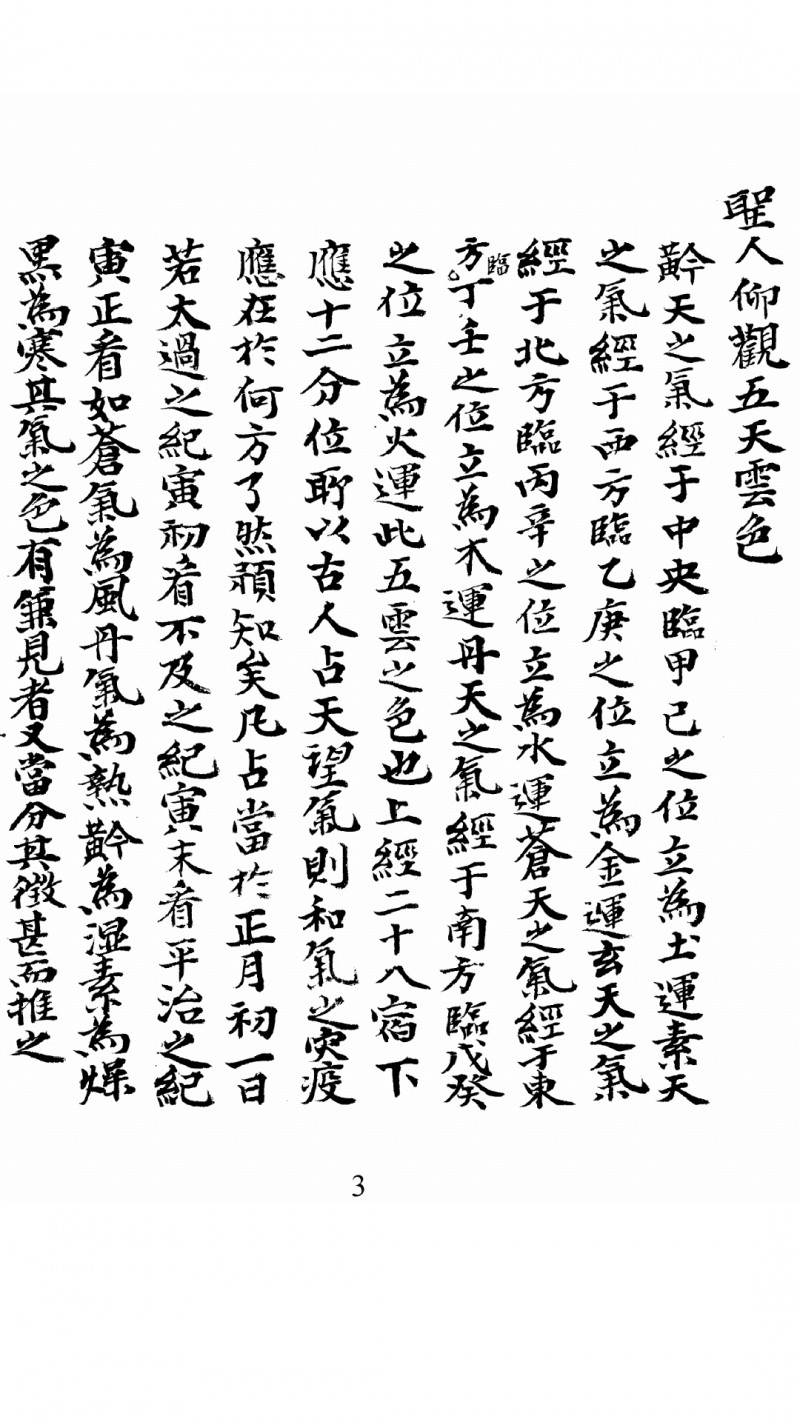 聖人仰觀五天雲色
黅天之氣經于中央臨甲己之位立為土運素天
之氣經于西方臨乙庚之位立為金運玄天之氣
經于北方臨丙辛之位立為水運蒼天之氣經于東
方臨丁壬之位立為木運丹天之氣經于南方臨戊癸
之位立為火運此五雲之色也上經二十八宿下
應十二分位所以古人占天望氣則和氣之灾疫
應在於何方了然預知矣凡占當於正月初一日
若太過之紀寅初看不及之紀寅末看平治之紀
寅正看如蒼氣為風丹氣為熱黅為湿素為燥
黑為寒其氣之色有兼見者又當分其微甚而推之
3